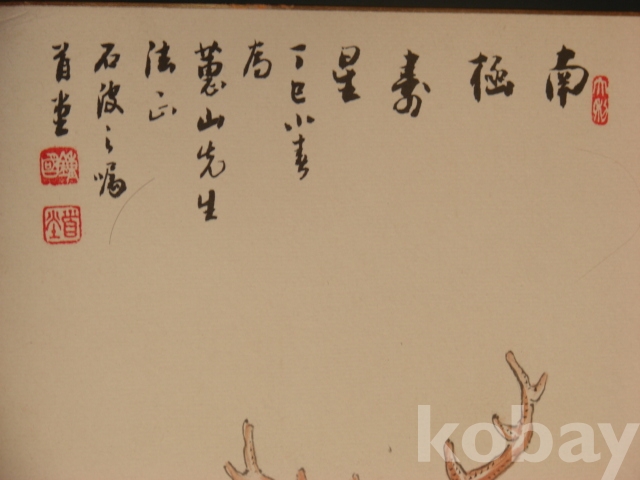 南極壽星
丁巳小春
為
蕙山先生
法正
石波之囑
首堂
kobay